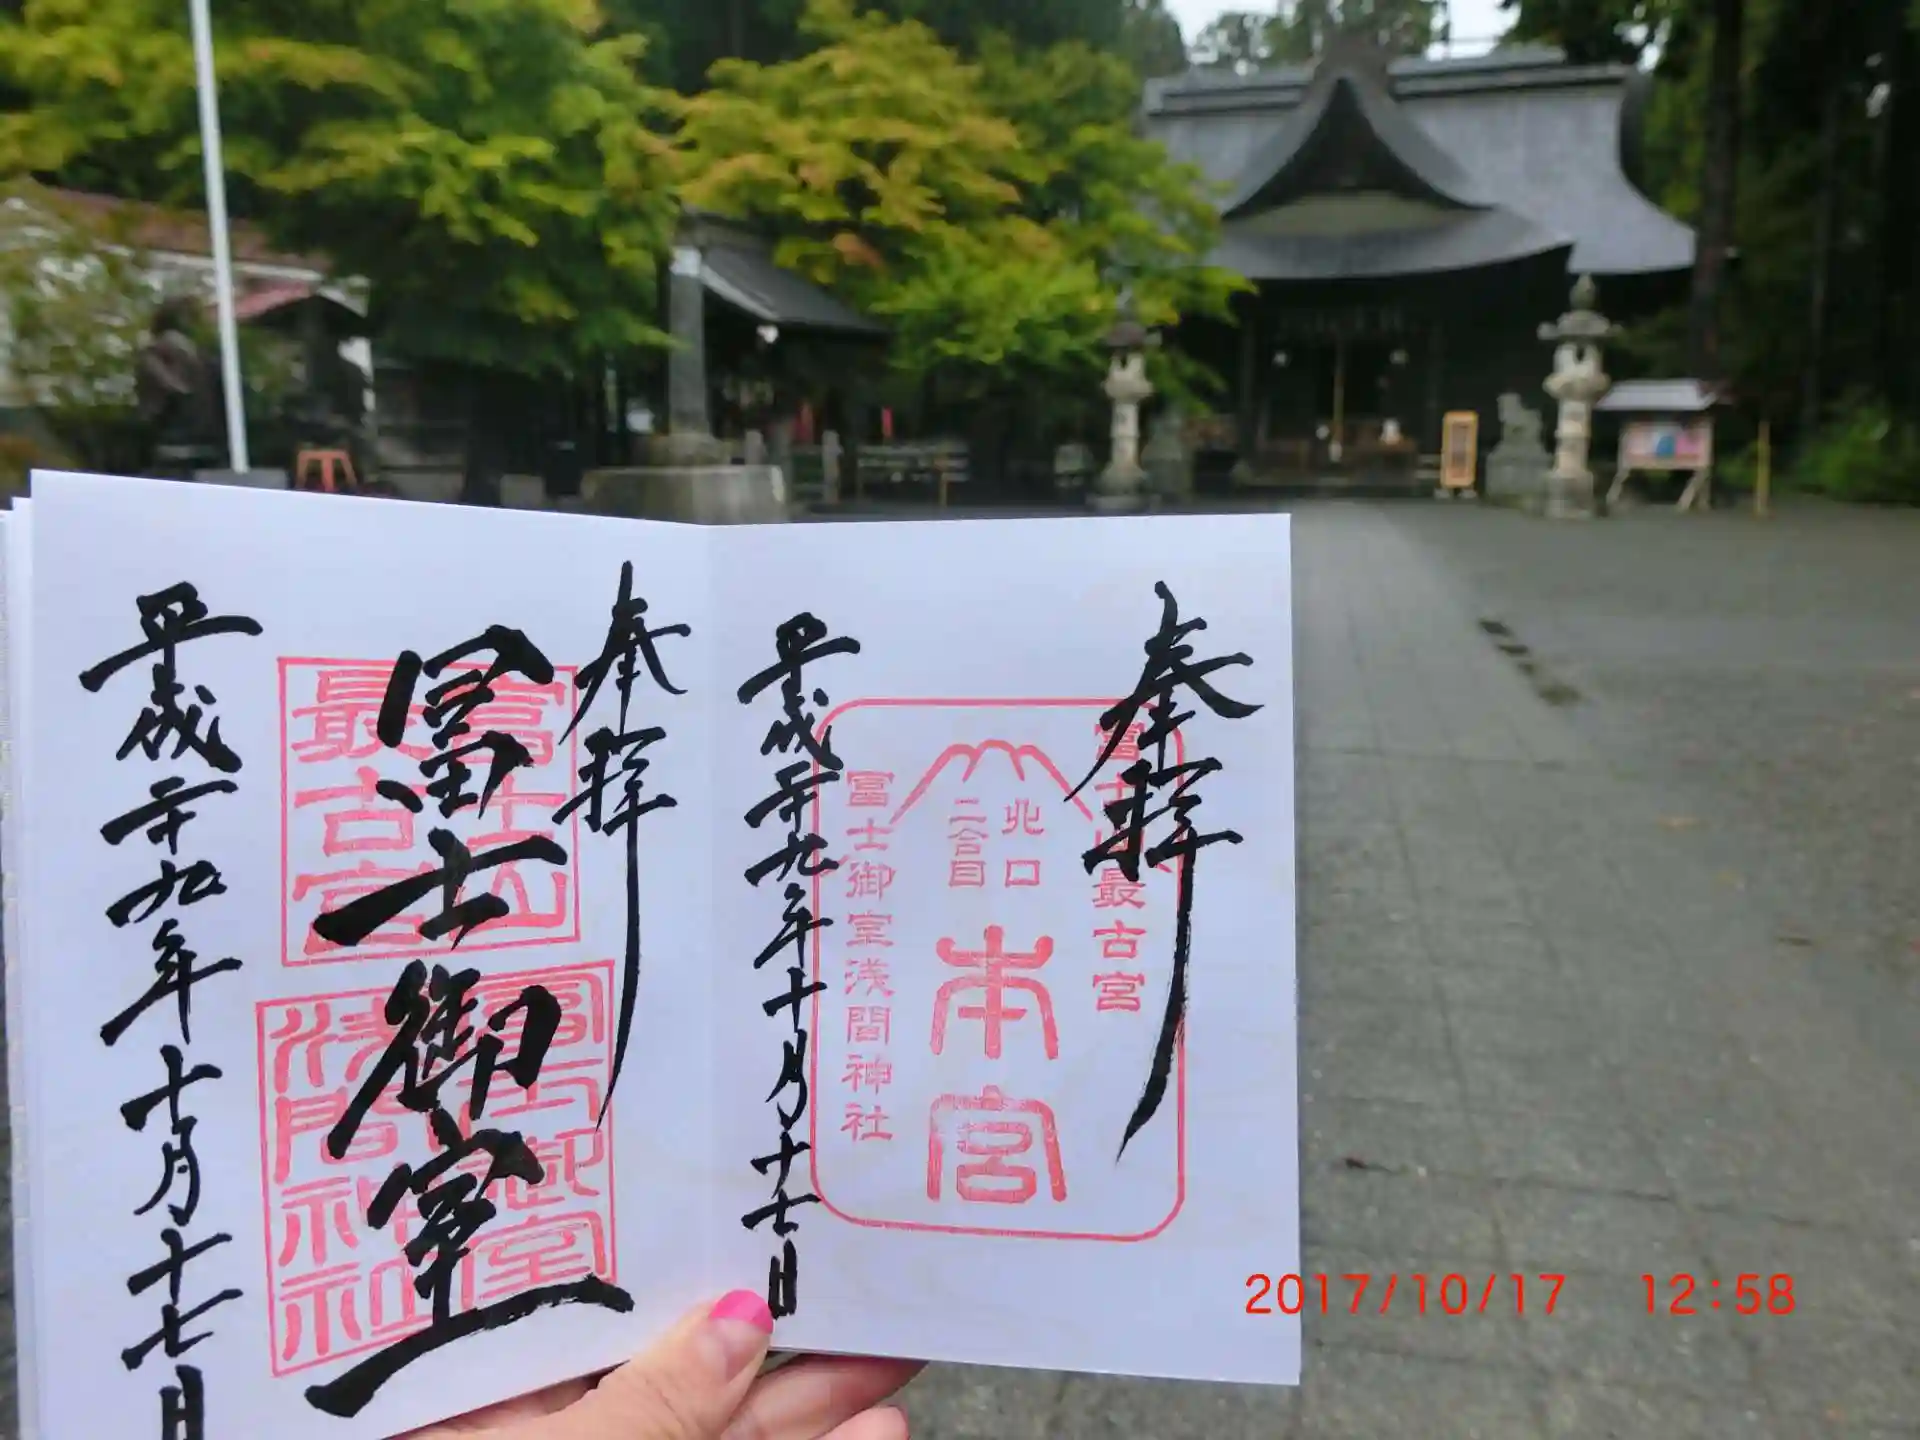 奉拝
富士山最古宮
北口
二合目
本宮
冨士御室浅間神社
平成二十九年十月十七日
奉拝
富士山
最古宮
冨士御室
冨士御室
浅間神社
平成二十九年十月十七日
2017/10/17 12:58